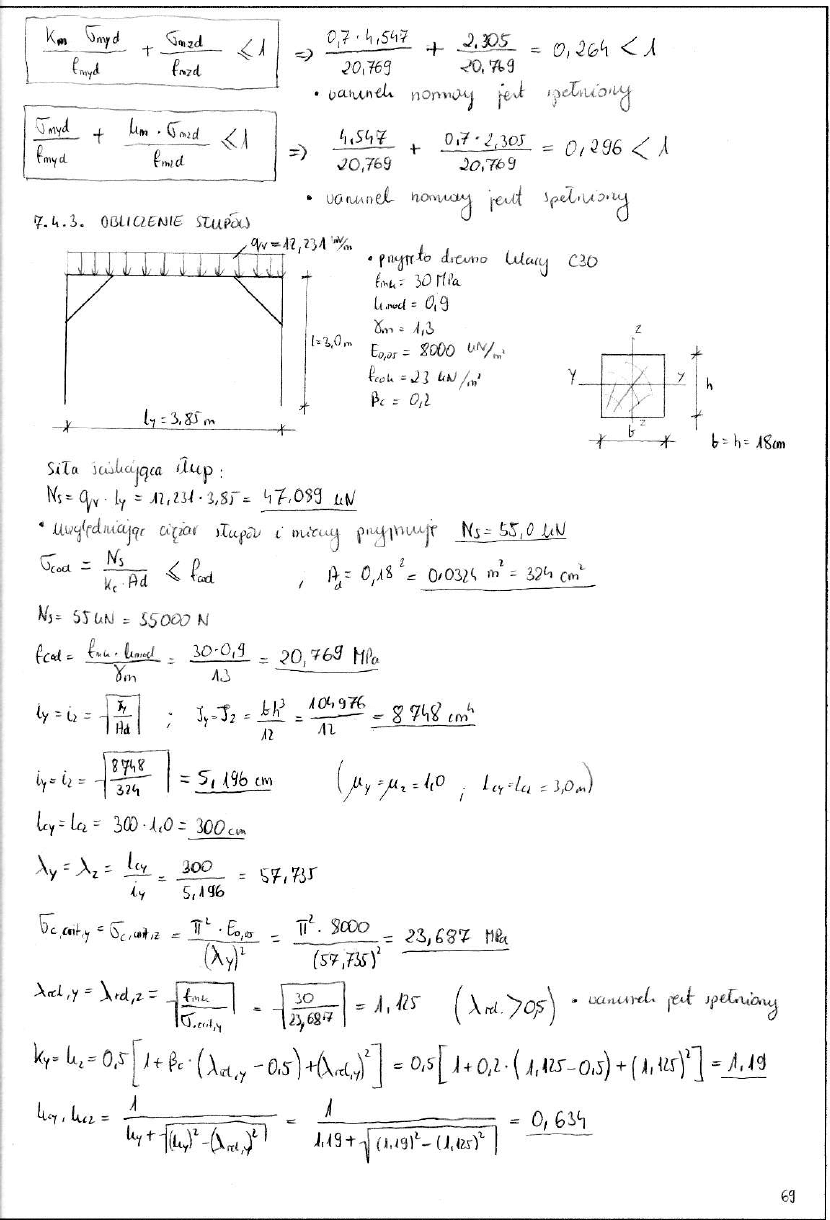 km σmyd / fmyd + σmzd / fmzd ≤ 1 => 0,7·4,547 / 20,769 + 2,305 / 20,769 = 0,264 < 1
• warunek normowy jest spełniony
σmyd / fmyd + km·σmzd / fmzd ≤ 1 => 4,547 / 20,769 + 0,7·2,305 / 20,769 = 0,296 < 1
• warunek normowy jest spełniony
7.4.3. OBLICZENIE SŁUPÓW
qv = 12,231 kN/m
• przyjęto drewno klasy C30
fmk = 30 MPa
kmod = 0,9
γm = 1,3
E0,05 = 8000 kN/m²
fcok = 23 kN/m²
βc = 0,2
l=3,0m
ly = 3,85 m
z
y y h
z
b
b = h = 18cm
Siła ściskająca słup:
Ns = qv · ly = 12,231·3,85 = 47,089 kN
• uwzględniając ciężar słupów i mieczy przyjmuję Ns = 55,0 kN
σcod = Ns / kc·Ad ≤ fcod , Ad = 0,18² = 0,0324 m² = 324 cm²
Ns = 55 kN = 55000 N
fcod = fmk·kmod / γm = 30·0,9 / 1,3 = 20,769 MPa
iy = iz = √(Jy / Ad) ; Jy = Jz = bh³ / 12 = 104976 / 12 = 8748 cm⁴
iy = iz = √(8748 / 324) = 5,196 cm (μy = μz = 1,0 ; lcy = lcz = 3,0m)
lcy = lcz = 300·1,0 = 300cm
λy = λz = lcy / iy = 300 / 5,196 = 57,735
σc,crit,y = σc,crit,z = π²·E0,05 / (λy)² = π²·8000 / (57,735)² = 23,687 MPa
λrel,y = λrel,z = √(fmk / σcrit,y) = √(30 / 23,687) = 1,125 (λrel. > 0,5) • warunek jest spełniony
ky = kz = 0,5[1+βc·(λrel,y − 0,5)+(λrel,y)²] = 0,5[1+0,2·(1,125−0,5)+(1,125)²] = 1,19
kcy, kcz = 1 / ky+√((ky)²−(λrel,y)²) = 1 / 1,19+√((1,19)²−(1,125)²) = 0,634
69